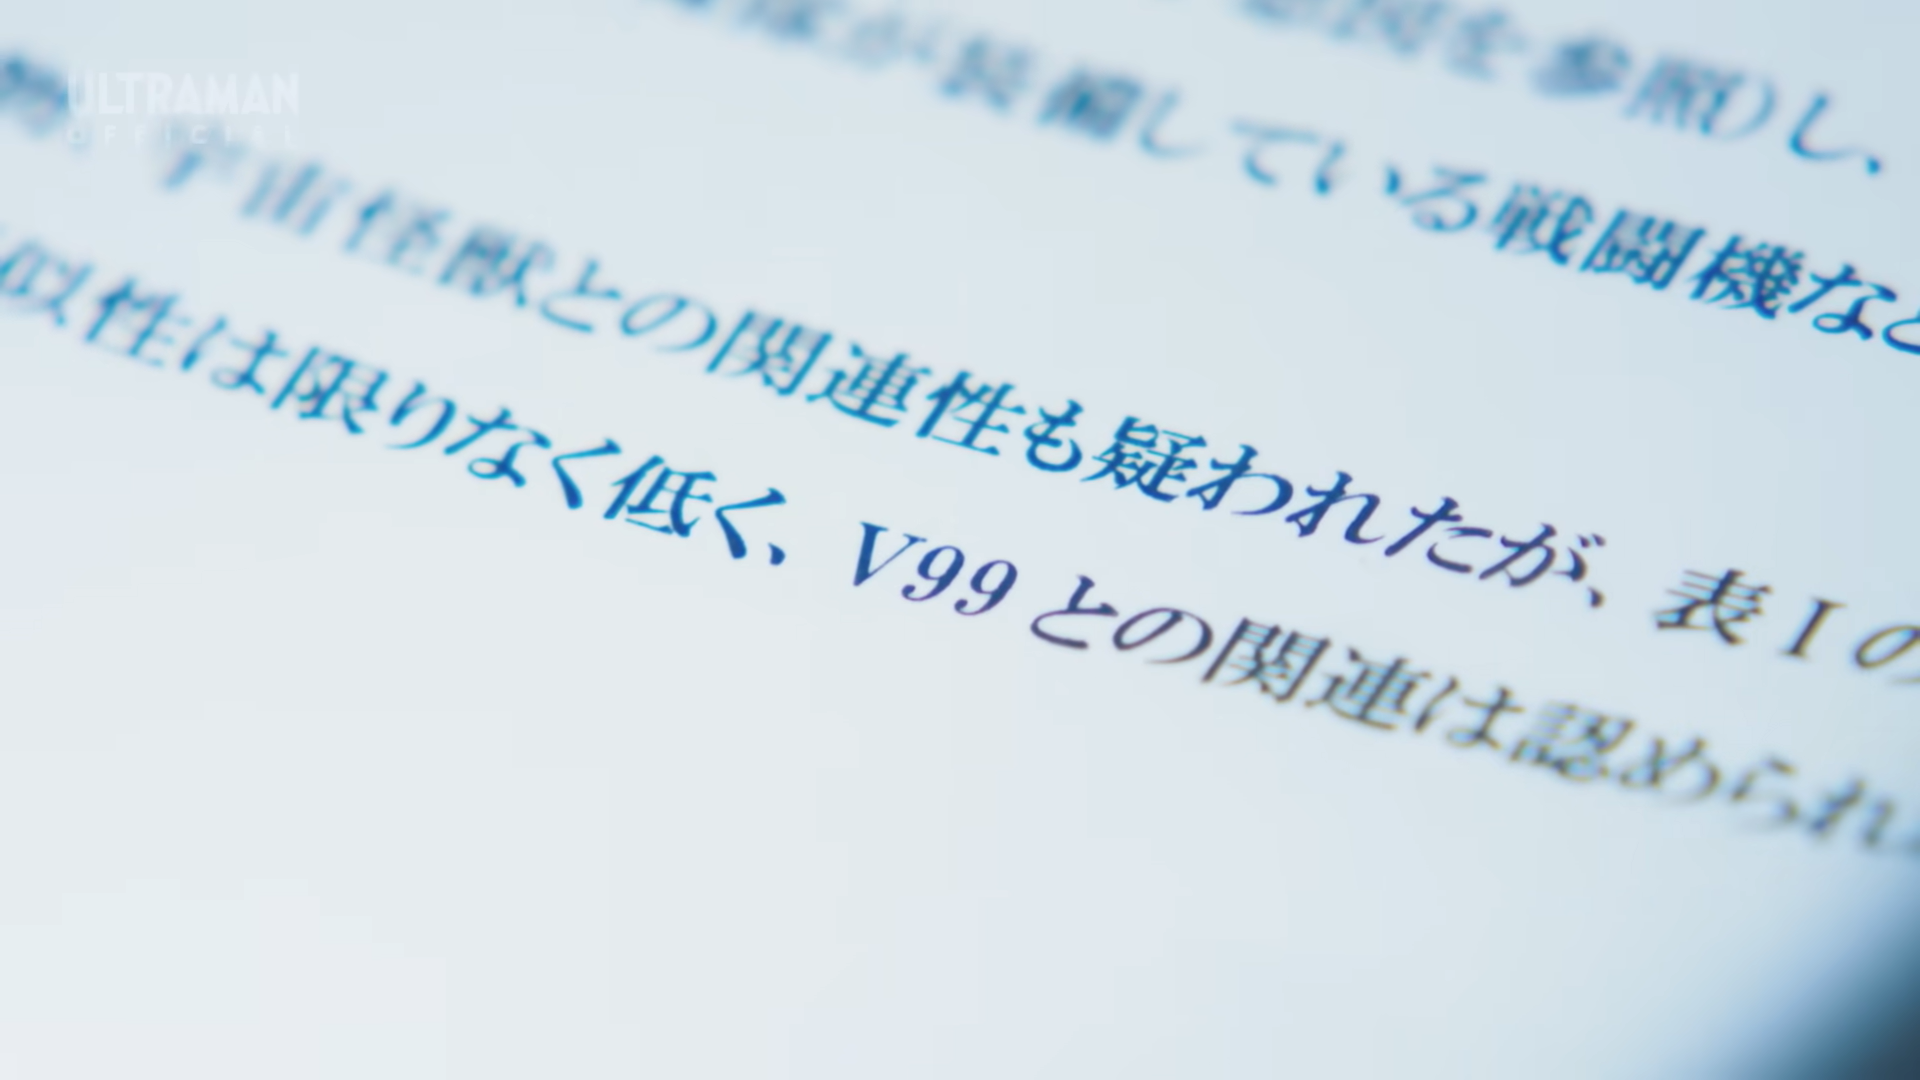 ULTRAMAN
OFFICIAL
を参照)し、
が装備している戦闘機など
宇宙怪獣との関連性も疑われたが、表Iの
似性は限りなく低く、V99との関連は認められ